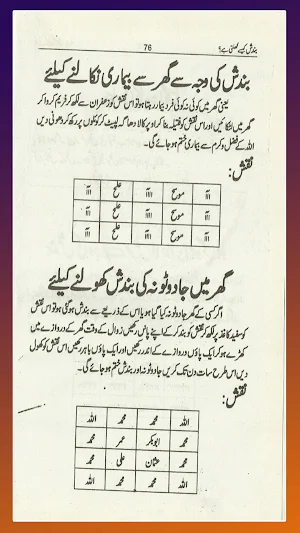 بندش کیسے کھلتی ہے؟
76
بندش کی وجہ سے گھر سے بیماری نکالنے کیلئے
یعنی گھر میں کوئی نہ کوئی فرد بیمار رہتا ہو تو اس نقش کو زعفران سے لکھ کر فریم کروا کر
گھر میں لٹکائیں اور اس نقش کو فتیلہ بنا کر اوپر کالا دھاگہ لپیٹ کر کوئلوں پر رکھ کر دھونی دیں
اللہ کے فضل و کرم سے بیماری ختم ہو جائے گی۔
نقش:
گھر میں جادو ٹونہ کی بندش کھولنے کیلئے
اگر کسی کے گھر کو جادو ٹونہ کیا گیا ہو یا اس کے ذریعے سے بندش ہو چکی ہو تو اس نقش
کو سفید کاغذ پر لکھ کر نقش کو بند کر کے اپنے پاس رکھیں زوال کے وقت گھر کے دروازے میں
کھڑے ہو کر ایک پاؤں دروازے کے اندر رکھیں اور ایک پاؤں باہر رکھیں اس نقش کو کھول
دیں اس طرح سات دن تک کریں جادو ٹونہ اور بندش ختم ہو جائے گی۔
نقش:
اللہ محمد محمد اللہ
محمد ابوبکر عمر محمد
محمد عثمان علی محمد
اللہ محمد محمد اللہ